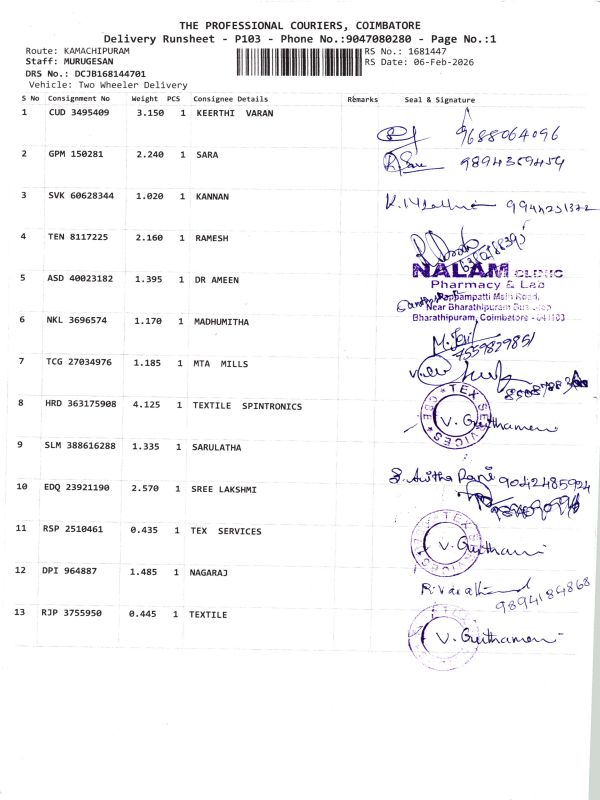 THE PROFESSIONAL COURIERS, COIMBATORE
Delivery Runsheet - P103 - Phone No.:9047080280 - Page No.:1
Route: KAMACHIPURAM
RS No.: 1681447
Staff: MURUGESAN
RS Date: 06-Feb-2026
DRS No.: DCJB168144701
Vehicle: Two Wheeler Delivery
S No Consignment No Weight PCS Consignee Details Remarks Seal & Signature
1 CUD 3495409 3.150 1 KEERTHI VARAN
9688064096
2 GPM 150281 2.240 1 SARA
9894369454
3 SVK 60628344 1.020 1 KANNAN
4 TEN 8117225 2.160 1 RAMESH
NALAM CLINIC
Pharmacy & Lab
5 ASD 40023182 1.395 1 DR AMEEN
Pappampatti Main Road,
Near Bharathipuram Bus Stop
Bharathipuram, Coimbatore - 641103
6 NKL 3696574 1.170 1 MADHUMITHA
7559829851
7 TCG 27034976 1.185 1 MTA MILLS
8 HRD 363175908 4.125 1 TEXTILE SPINTRONICS
TEX SERVICES CBE
V. Guithamani
9 SLM 388616288 1.335 1 SARULATHA
S. Anitha Rani 9042485924
10 EDQ 23921190 2.570 1 SREE LAKSHMI
11 RSP 2510461 0.435 1 TEX SERVICES
V. Guithamani
12 DPI 964887 1.485 1 NAGARAJ
9894184868
13 RJP 3755950 0.445 1 TEXTILE
V. Guithamani